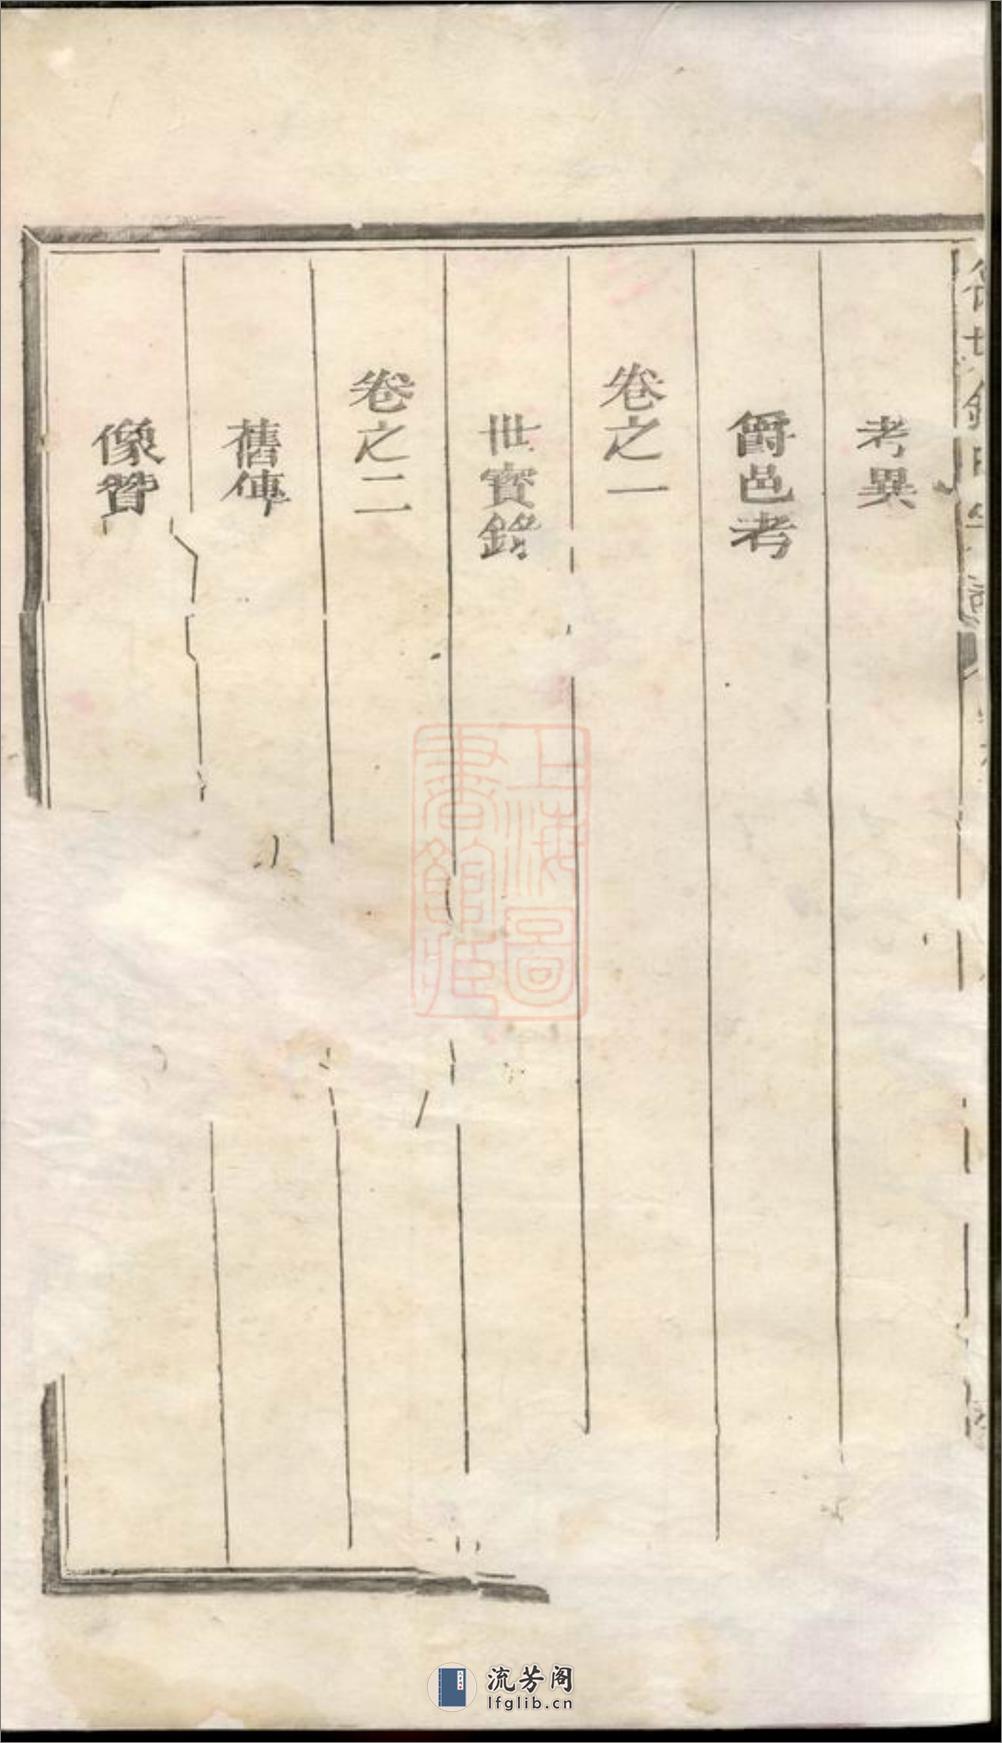 考異
爵邑考
卷之一
世實錄
卷之二
舊傳
像贊
上海圖
書館藏
流芳阁
lfglib.cn